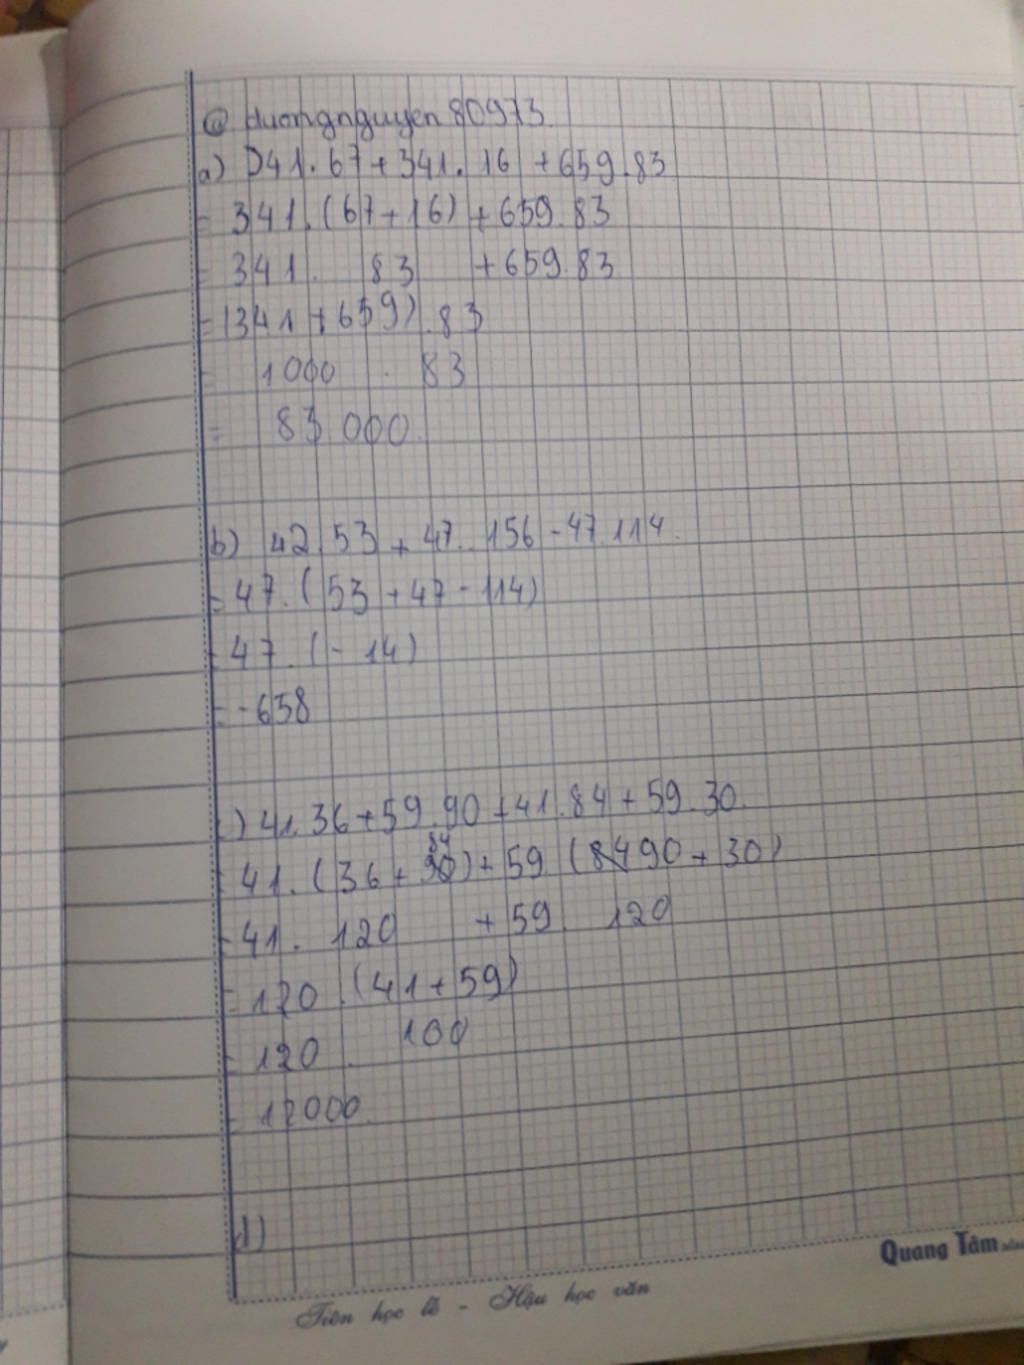 @ duongnguyen80973.
a) 341.67+341.16+659.83
= 341.(67+16)+659.83
= 341. 83 +659.83
=(341+659).83
= 1000 . 83
= 83 000.
b) 42.53+47.156-47.114.
= 47.(53+47-114)
= 47.(-14)
= -658
c) 41.36+59.90+41.84+59.30.
= 41.(36+84)+59.(90+30)
= 41. 120 +59. 120
= 120.(41+59)
= 120 . 100
= 12000.
d)
Quang Tâm
Tiên học lễ - Hậu học văn